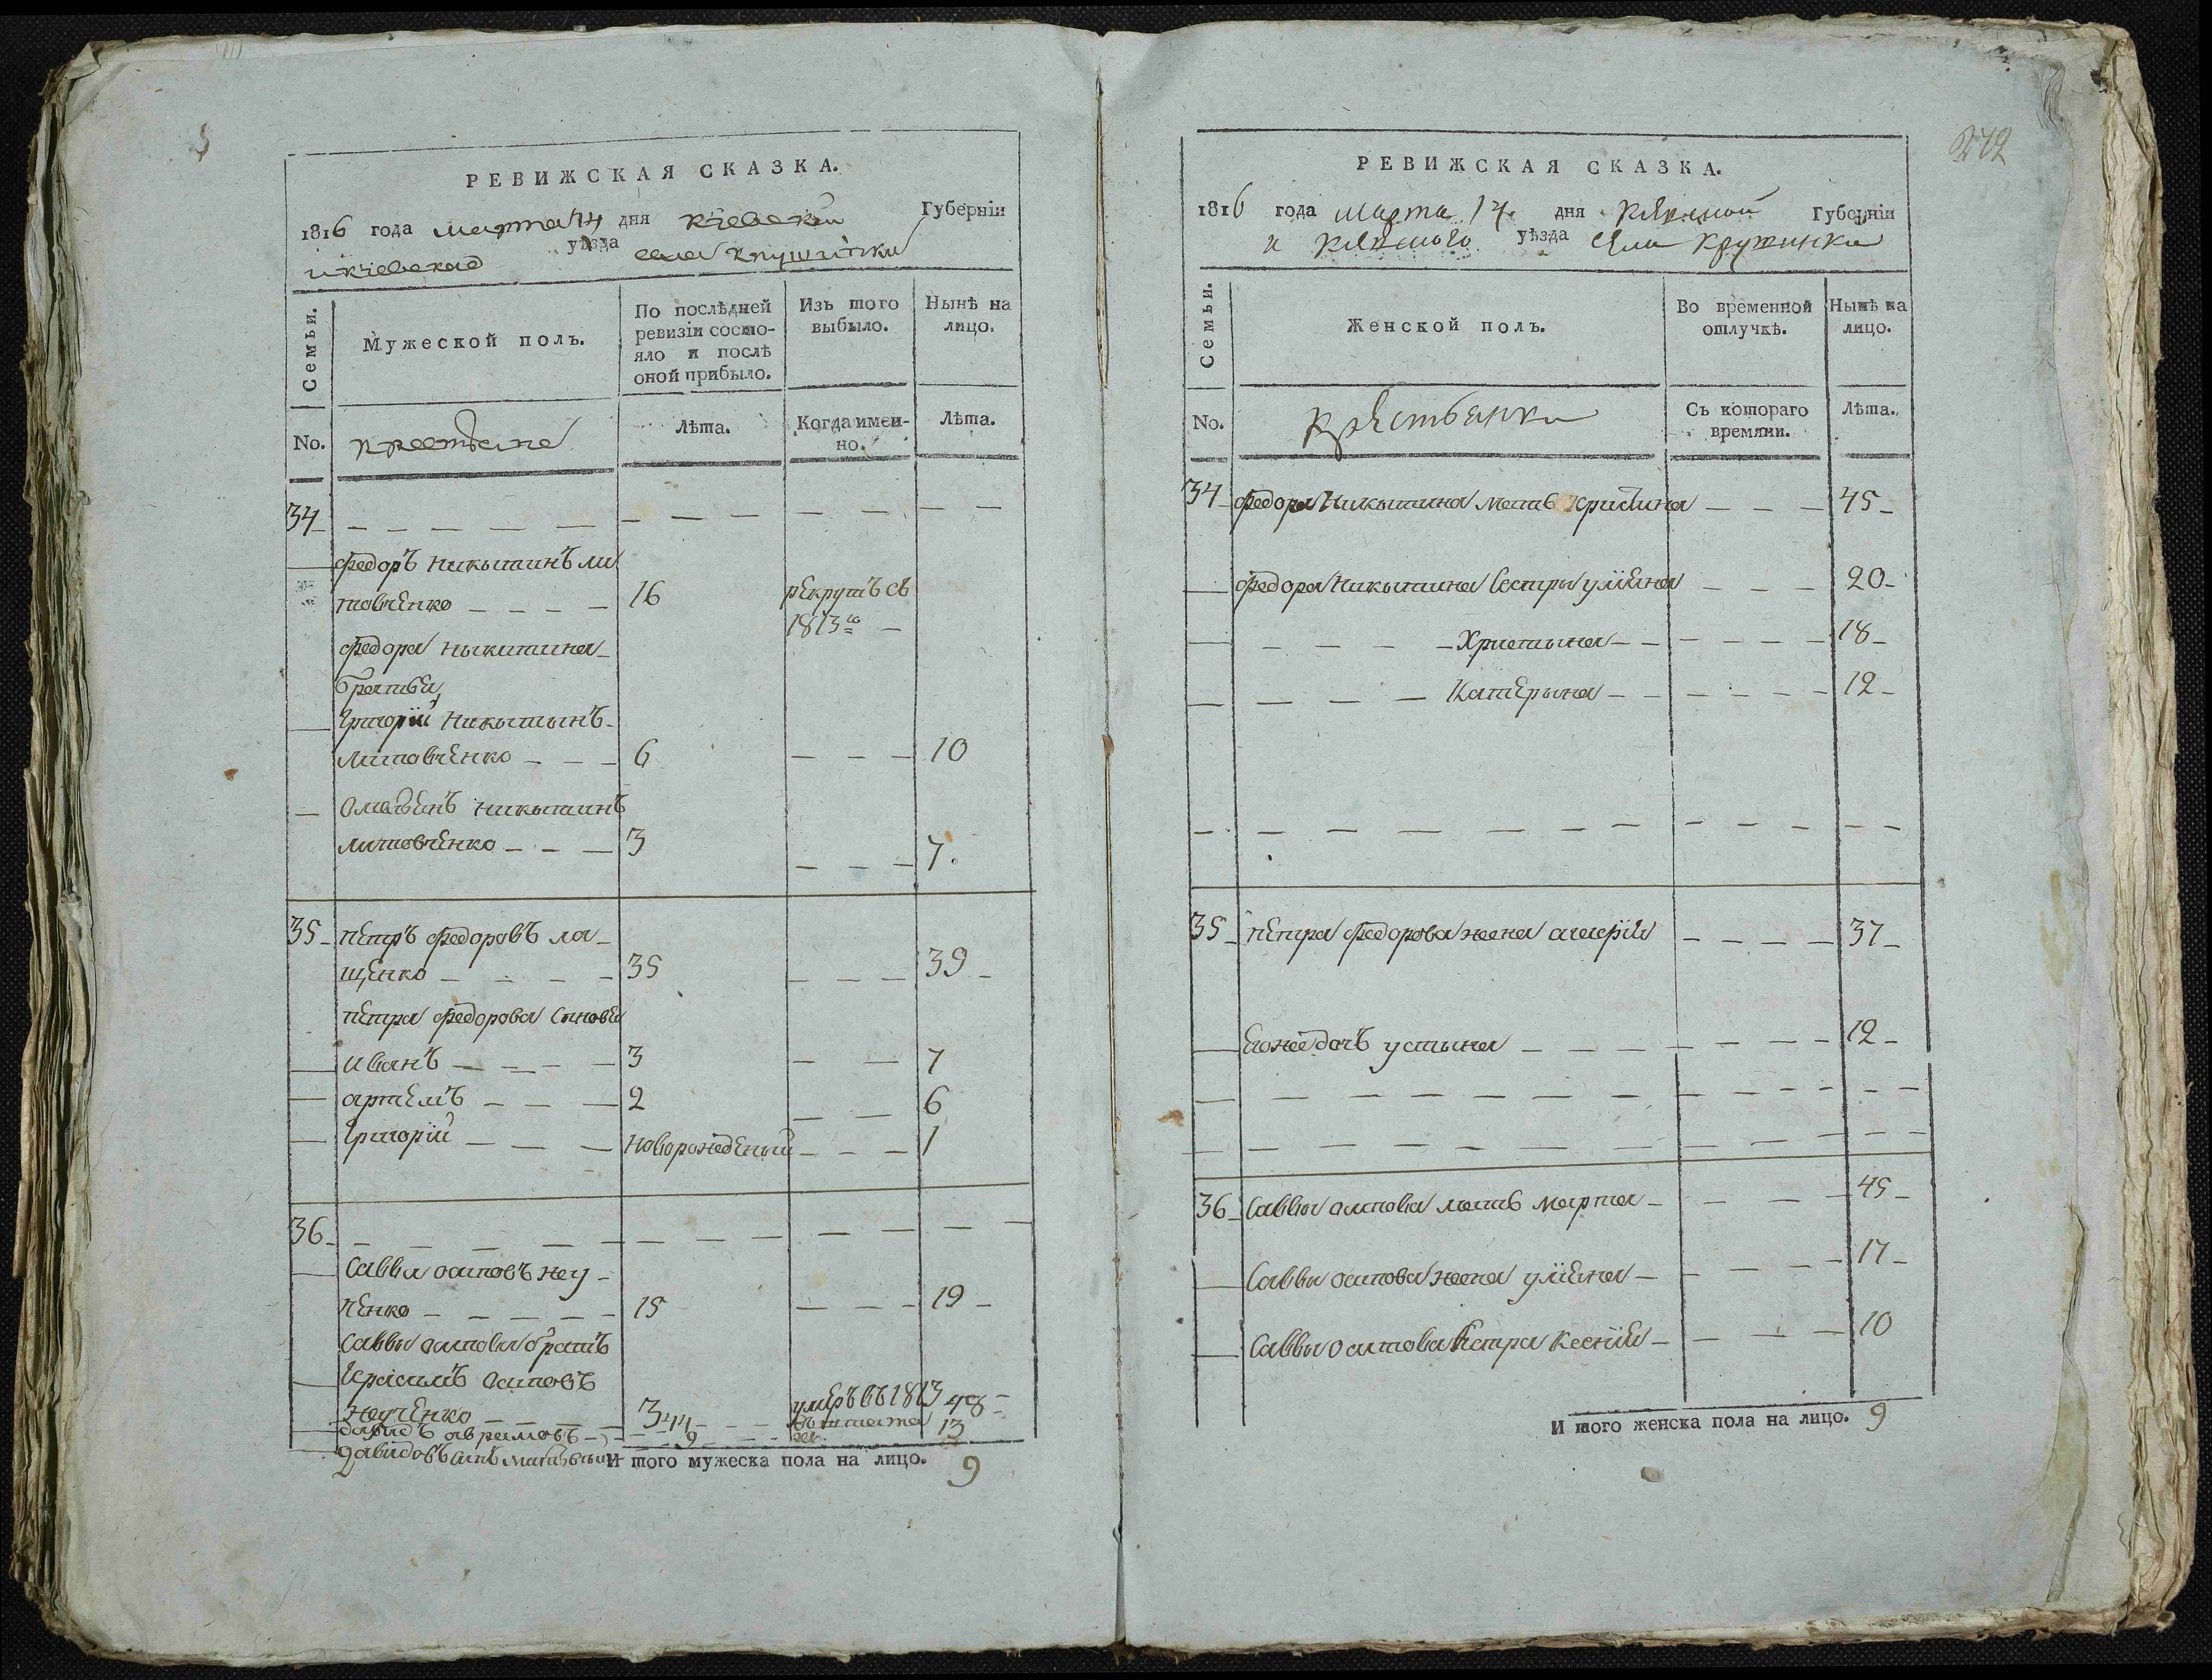 РЕВИЖСКАЯ СКАЗКА.
1816 года марта 14 дня кіевской Губерніи
и кіевскаго уѣзда села Кружинки
Семьи.
Мужеской полъ.
По послѣдней ревизіи состояло и послѣ оной прибыло.
Изъ того выбыло.
Нынѣ на лицо.
No.
крестяне
Лѣта.
Когда именно.
Лѣта.
34
федоръ Никытинъ ли
товченко 16 рекрутъ съ
1813го
федора Никитина
братья
Григорій Никытынъ
литовченко 6 10
Никытинъ
литовченко 3 7.
35 петръ федоровъ ла
щенко 35 39
петра федорова Сыновья
иванъ 3 7
артемъ 2 6
Григорій новорожденый 1
36
Савва осиповъ неу
ченко 15 19
Саввы осипова братъ
Герасимъ Осиповъ
неученко 3 умеръ въ 1813
давидъ аврамовъ 44 48
давидовъ синъ 9 13
И того мужеска пола на лицо. 9
272
РЕВИЖСКАЯ СКАЗКА.
1816 года марта 14. дня Кіевской Губерніи
и Кіевского уѣзда села Кружинки
Семьи.
Женской полъ.
Во временной отлучкѣ.
Нынѣ на лицо.
No.
крестьянки
Съ котораго времяни.
Лѣта.
34 федора Никытина мать Христина 45
федора Никытина Сестры уліяна 20
Христына 18
Катерына 12
35 петра федорова жена 37
его же дочъ устына 12
36 Саввы осипова мать марта 45
Саввы осипова жена уліяна 17
Саввы осипова Сестра Ксенія 10
И того женска пола на лицо. 9